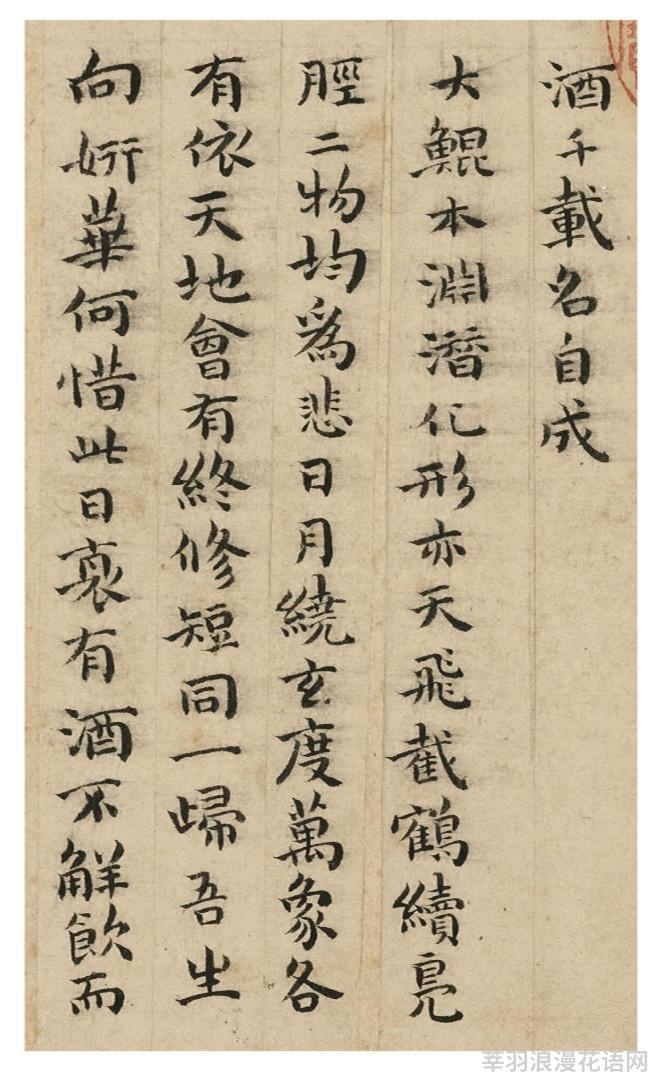 酒千載名自成
大鯤本淵潛化形亦天飛截鶴續鳧
脛二物均爲悲日月繞玄度萬象各
有依天地會有終修短同一歸吾生
向妍華何惜此日衰有酒不解飲而
莘羽浪漫花语网